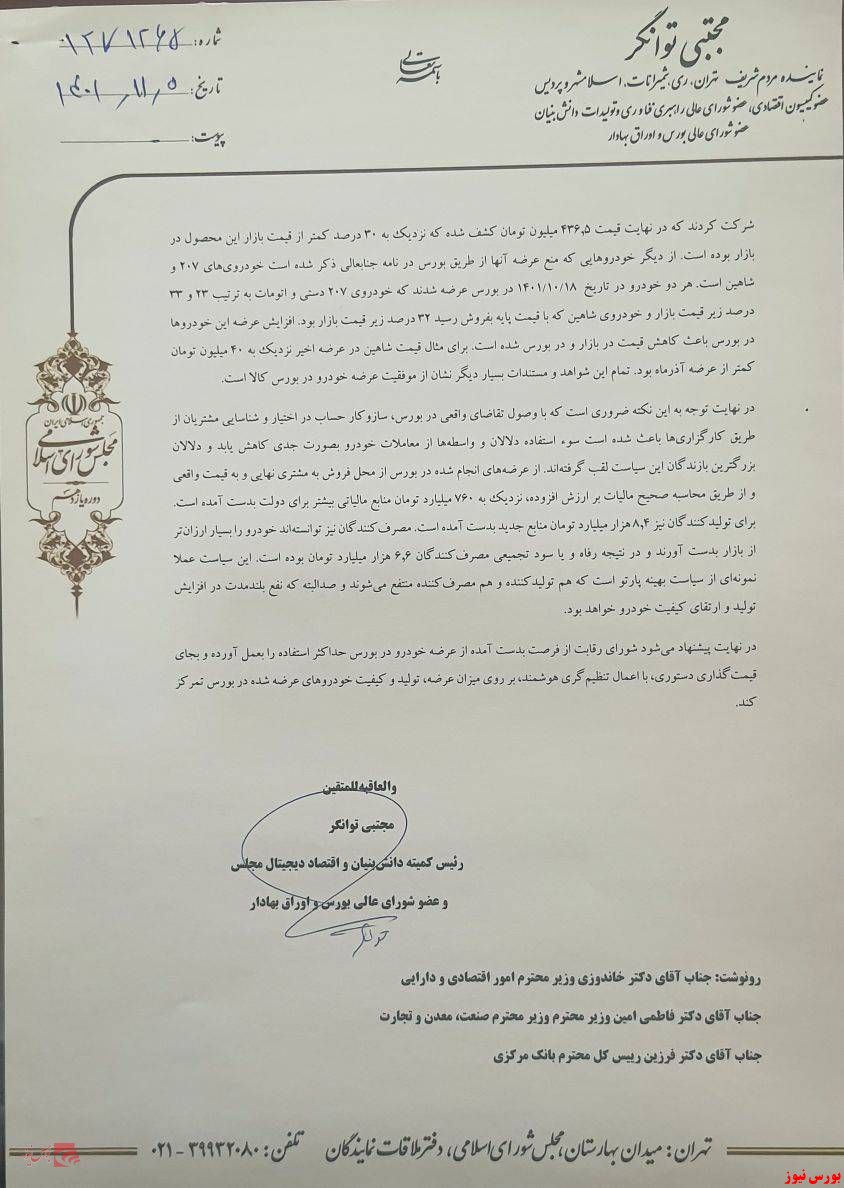 مجتبی توانگر
نماینده مردم شریف تهران، ری، شمیرانات، اسلامشهر و پردیس
عضو کمیسیون اقتصادی، عضو شورای عالی راهبری فناوری و تولیدات دانش بنیان
عضو شورای عالی بورس و اوراق بهادار
باسمه تعالی
شماره:
تاریخ: ۱۴۰۱/۱۱/۵
پیوست:
شرکت کردند که در نهایت قیمت ۴۳۶٫۵ میلیون تومان کشف شده که نزدیک به ۳۰ درصد کمتر از قیمت بازار این محصول در
بازار بوده است. از دیگر خودروهایی که منع عرضه آنها از طریق بورس در نامه جنابعالی ذکر شده است خودروی‌های ۲۰۷ و
شاهین است. هر دو خودرو در تاریخ ۱۴۰۱/۱۰/۱۸ در بورس عرضه شدند که خودروی ۲۰۷ دستی و اتومات به ترتیب ۲۳ و ۳۳
درصد زیر قیمت بازار و خودروی شاهین که با قیمت پایه بفروش رسید ۳۲ درصد زیر قیمت بازار بود. افزایش عرضه این خودروها
در بورس باعث کاهش قیمت در بازار و در بورس شده است. برای مثال قیمت شاهین در عرضه اخیر نزدیک به ۴۰ میلیون تومان
کمتر از عرضه آذرماه بود. تمام این شواهد و مستندات بسیار دیگر نشان از موفقیت عرضه خودرو در بورس کالا است.
در نهایت توجه به این نکته ضروری است که با وصول تقاضای واقعی در بورس، سازوکار حساب در اختیار و شناسایی مشتریان از
طریق کارگزاری‌ها باعث شده است سوء استفاده دلالان و واسطه‌ها از معاملات خودرو بصورت جدی کاهش یابد و دلالان
بزرگترین بازندگان این سیاست لقب گرفته‌اند. از عرضه‌های انجام شده در بورس از محل فروش به مشتری نهایی و به قیمت واقعی
و از طریق محاسبه صحیح مالیات بر ارزش افزوده، نزدیک به ۷۶۰ میلیارد تومان منابع مالیاتی بیشتر برای دولت بدست آمده است.
برای تولیدکنندگان نیز ۸٫۴ هزار میلیارد تومان منابع جدید بدست آمده است. مصرف‌کنندگان نیز توانسته‌اند خودرو را بسیار ارزان‌تر
از بازار بدست آورند و در نتیجه رفاه و یا سود تجمیعی مصرف‌کنندگان ۶٫۶ هزار میلیارد تومان بوده است. این سیاست عملا
نمونه‌ای از سیاست بهینه پارتو است که هم تولیدکننده و هم مصرف‌کننده منتفع می‌شوند و صدالبته که نفع بلندمدت در افزایش
تولید و ارتقای کیفیت خودرو خواهد بود.
در نهایت پیشنهاد می‌شود شورای رقابت از فرصت بدست آمده از عرضه خودرو در بورس حداکثر استفاده را بعمل آورده و بجای
قیمت‌گذاری دستوری، با اعمال تنظیم‌گری هوشمند، بر روی میزان عرضه، تولید و کیفیت خودروهای عرضه شده در بورس تمرکز
کند.
جمهوری اسلامی ایران
مجلس شورای اسلامی
دوره یازدهم
والعاقبه للمتقین
مجتبی توانگر
رئیس کمیته دانش‌بنیان و اقتصاد دیجیتال مجلس
و عضو شورای عالی بورس و اوراق بهادار
رونوشت: جناب آقای دکتر خاندوزی وزیر محترم امور اقتصادی و دارایی
جناب آقای دکتر فاطمی امین وزیر محترم وزیر محترم صنعت، معدن و تجارت
جناب آقای دکتر فرزین رییس کل محترم بانک مرکزی
تهران: میدان بهارستان، مجلس شورای اسلامی، دفتر ملاقات نمایندگان تلفن: ۳۹۹۳۲۰۸۰ - ۰۲۱
بورس نیوز